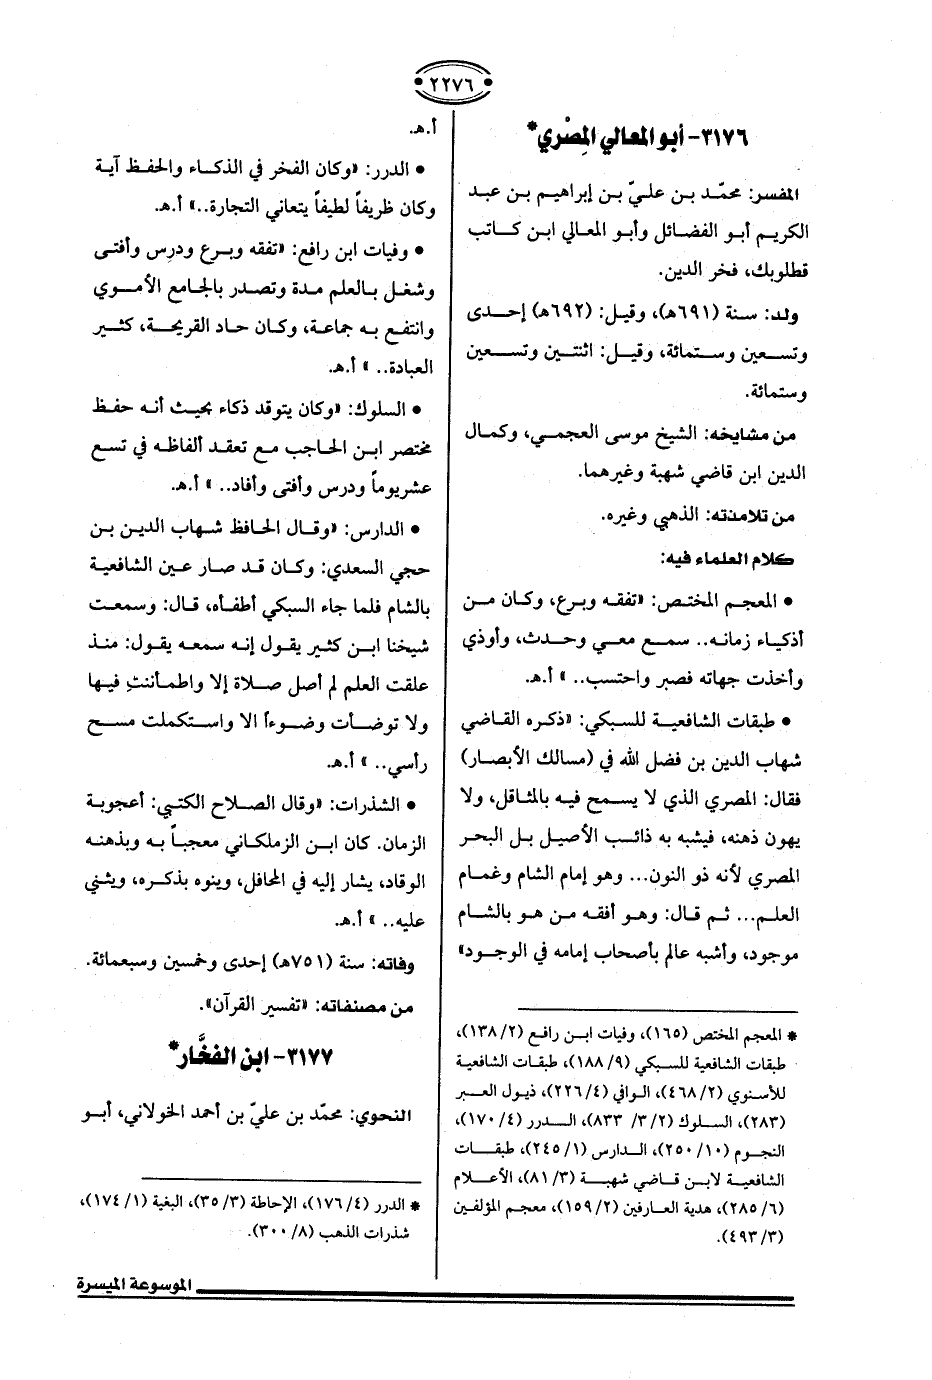 ٢٢٧٦
٣١٧٦- أبو المعالي المِصْري*
المفسر: محمّد بن عليّ بن إبراهيم بن عبد
الكريم أبو الفضائل وأبو المعالي ابن كاتب
قطلوبك، فخر الدين.
ولد: سنة (٦٩١هـ)، وقيل: (٦٩٢هـ) إحدى
وتسعين وستمائة، وقيل: اثنتين وتسعين
وستمائة.
من مشايخه: الشيخ موسى العجمي، وكمال
الدين ابن قاضي شهبة وغيرهما.
من تلامذته: الذهبي وغيره.
كلام العلماء فيه:
• المعجم المختص: «تفقه وبرع، وكان من
أذكياء زمانه.. سمع معي وحدث، وأوذي
وأخذت جهاته فصبر واحتسب.. » أ.هـ.
• طبقات الشافعية للسبكي: «ذكره القاضي
شهاب الدين بن فضل الله في (مسالك الأبصار)
فقال: المصري الذي لا يسمح فيه بالمثاقل، ولا
يهون ذهنه، فيشبه به ذائب الأصيل بل البحر
المصري لأنه ذو النون... وهو إمام الشام وغمام
العلم... ثم قال: وهو أفقه من هو بالشام
موجود، وأشبه عالم بأصحاب إمامه في الوجود»
* المعجم المختص (١٦٥)، وفيات ابن رافع (٢/ ١٣٨)،
طبقات الشافعية للسبكي (٩/ ١٨٨)، طبقات الشافعية
للأسنوي (٢/ ٤٦٨)، الوافي (٤/ ٢٢٦)، ذيول العبر
(٢٨٣)، السلوك (٢/ ٣/ ٨٣٣)، الدرر (٤/ ١٧٠)،
النجوم (١٠/ ٢٥٠)، الدارس (١/ ٢٤٥)، طبقات
الشافعية لابن قاضي شهبة (٣/ ٨١)، الأعلام
(٦/ ٢٨٥)، هدية العارفين (٢/ ١٥٩)، معجم المؤلفين
(٣/ ٤٩٣).
أ.هـ.
• الدرر: «وكان الفخر في الذكاء والحفظ آية
وكان ظريفاً لطيفاً يتعاني التجارة..» أ.هـ.
• وفيات ابن رافع: «تفقه وبرع ودرس وأفتى
وشغل بالعلم مدة وتصدر بالجامع الأموي
وانتفع به جماعة، وكان حاد القريحة، كثير
العبادة.. » أ.هـ.
• السلوك: «وكان يتوقد ذكاء بحيث أنه حفظ
مختصر ابن الحاجب مع تعقد ألفاظه في تسع
عشريوماً ودرس وأفتى وأفاد.. » أ.هـ.
• الدارس: «وقال الحافظ شهاب الدين بن
حجي السعدي: وكان قد صار عين الشافعية
بالشام فلما جاء السبكي أطفأه، قال: وسمعت
شيخنا ابن كثير يقول إنه سمعه يقول: منذ
علقت العلم لم أصل صلاة إلا واطمأننت فيها
ولا توضأت وضوءاً الا واستكملت مسح
رأسي.. » أ.هـ.
• الشذرات: «وقال الصلاح الكتبي: أعجوبة
الزمان. كان ابن الزملكاني معجباً به وبذهنه
الوقاد، يشار إليه في المحافل، وينوه بذكره، ويثني
عليه.. » أ.هـ.
وفاته: سنة (٧٥١هـ) إحدى وخمسين وسبعمائة.
من مصنفاته: «تفسير القرآن».
٣١٧٧- ابن الفخَّار*
النحوي: محمّد بن عليّ بن أحمد الخولاني، أبو
* الدرر (٤/ ١٧٦)، الإحاطة (٣/ ٣٥)، البغية (١/ ١٧٤)،
شذرات الذهب (٨/ ٣٠٠).
الموسوعة الميسرة